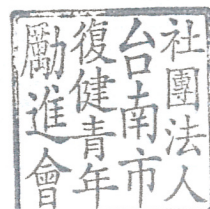 社團法人
台南市
復健青年
勵進會